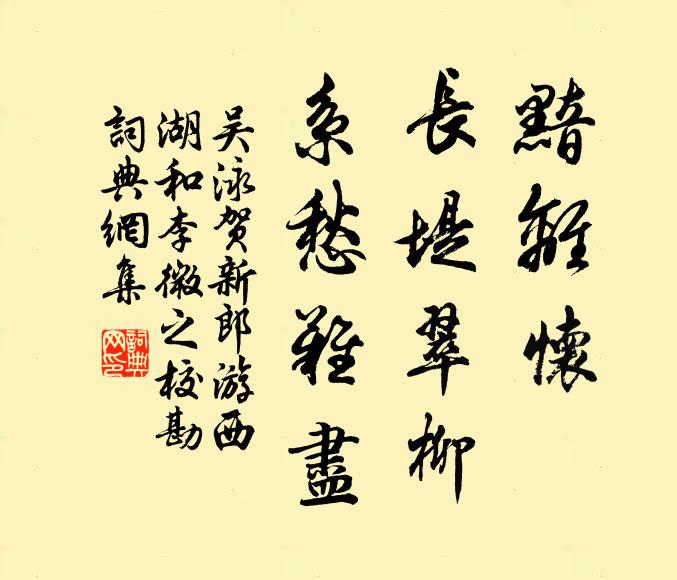 黯離懷
長堤翠柳
系愁難盡
吴泳贺新郎游西
湖和李微之校勘
詞典網集
詞典
网印